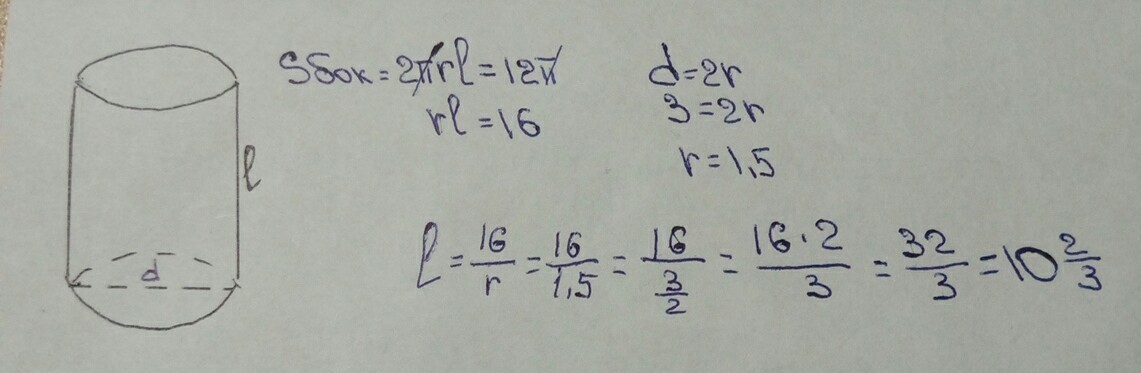 Sбок = 2πrl = 12π
rl = 16
d = 2r
3 = 2r
r = 1,5
l
d
l = 16/r = 16/1,5 = 16/(3/2) = 16·2/3 = 32/3 = 10 2/3